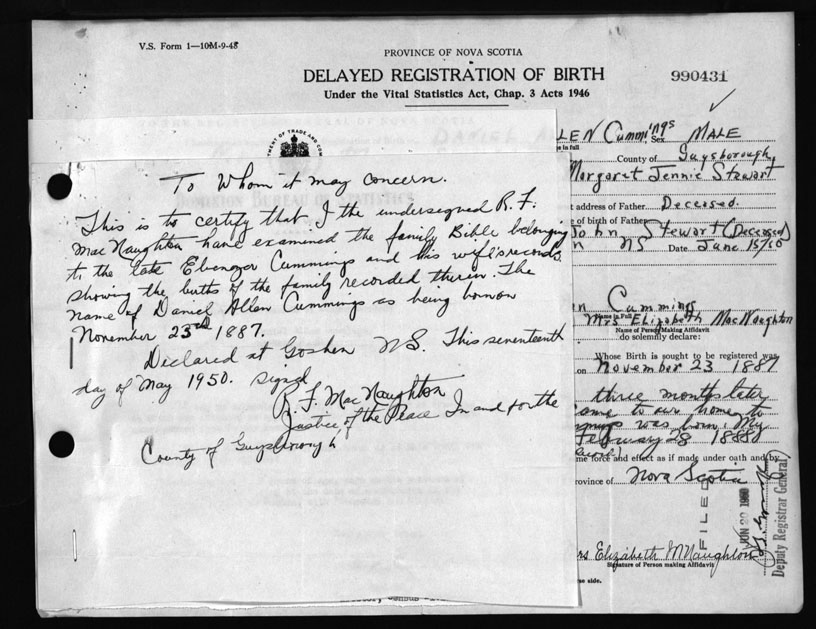 V.S. Form 1—10M-9-48
PROVINCE OF NOVA SCOTIA
DELAYED REGISTRATION OF BIRTH
990431
Under the Vital Statistics Act, Chap. 3 Acts 1946
To Whom it may concern.
This is to certify that I the undersigned R. F.
MacNaughton have examined the family Bible belonging
to the late Ebenezer Cummings and his wife's records
showing the births of the family recorded therein. The
name of Daniel Allen Cummings as being born on
November 23rd 1887.
Declared at Goshen N.S. This seventeenth
day of May 1950. signed
R. F. MacNaughton
Justice of the Peace In and for the
County of Guysborough
LLEN Cummings Sex MALE
County of Guysborough
Margaret Jennie Stewart
address of Father Deceased.
of birth of Father
John Stewart (Deceased)
NS Date June 15/50
Cummings
Name in Full
Mrs Elizabeth MacNaughton
Name of Person Making Affidavit
do solemnly declare:
Whose Birth is sought to be registered was
on November 23 1887
three months later
came to our home to
was born. My
February 28 1888
me force and effect as if made under oath and by
rovince of Nova Scotia
FILED
JUN 20 1950
Deputy Registrar General
rs Elizabeth McNaughton
Signature of Person making Affidavit
se side.